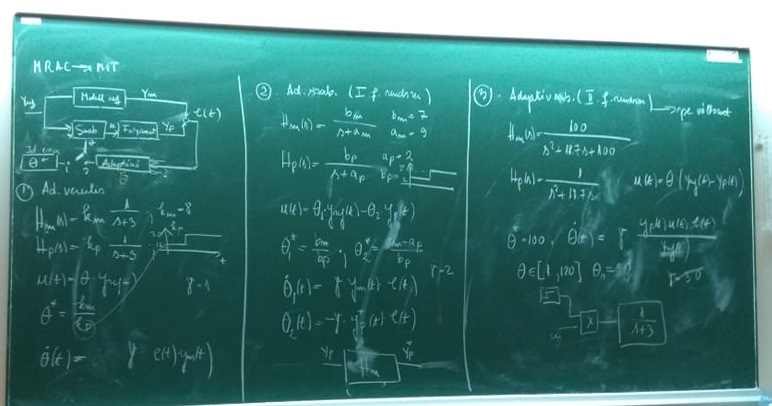 MRAC → MIT
Modell ref
ym
e(t)
Szab
u
Folyamat
yp
θ*
① Ad. vezérlés
Hm(s) = km 1/(s+3) ; km=8
Hp(s) = kp 1/(s+3)
kp
t
u(t) = θ · yref(t)
γ = 1
θ* = km/kp
θ̇(t) = γ e(t) · ym(t)
② Ad. szab. (I f. rendszer)
Hm(s) = bm/(s+am) bm = 7 am = 9
Hp(s) = bp/(s+ap) ap = 2
bp
θ1* = bm/bp ; θ2* = (am-ap)/bp
γ = 2
θ̇1(t) = γ ym(t) e(t)
θ̇2(t) = -γ · yp(t) e(t)
yp
Hm
③ Adaptív szab. (II. f. rendszer)
Hm(s) = 100/(s²+18.7s+100)
Hp(s) = 1/(s²+18.7s)
u(t) = θ (yref(t) - yp(t))
θ* = 100, θ̇(t) = γ
θ ∈ [1, 120]
γ = 50
X
1/(s+3)